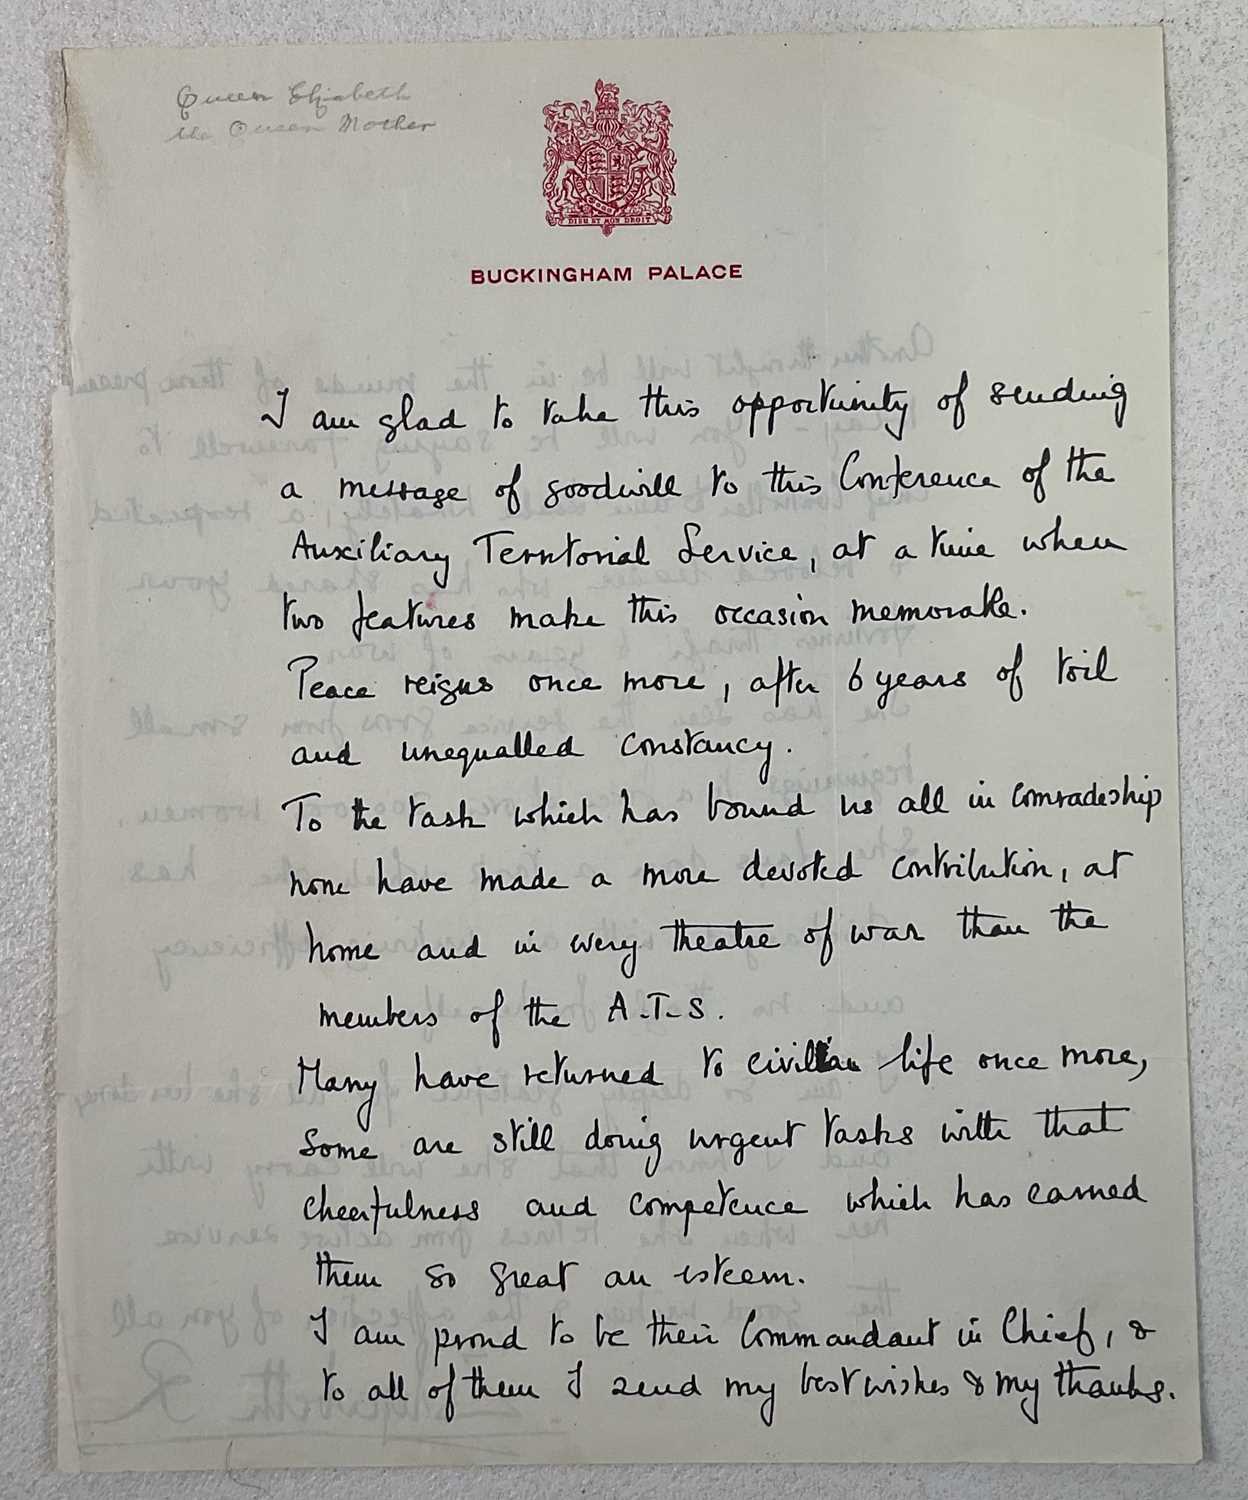 Queen Elizabeth
the Queen Mother
DIEU ET MON DROIT
BUCKINGHAM PALACE
I am glad to take this opportunity of sending
a message of goodwill to this Conference of the
Auxiliary Territorial Service, at a time when
two features make this occasion memorable.
Peace reigns once more, after 6 years of toil
and unequalled constancy.
To the task which has bound us all in comradeship
none have made a more devoted contribution, at
home and in every theatre of war than the
members of the A.T.S.
Many have returned to civilian life once more,
some are still doing urgent tasks with that
cheerfulness and competence which has earned
them so great an esteem.
I am proud to be their Commandant in Chief, &
to all of them I send my best wishes & my thanks.